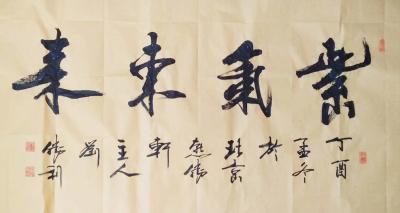 紫氣東來
丁酉
孟冬
於
北京
德勝
軒
主人
劉
勝利